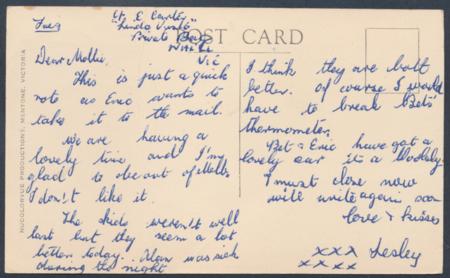 Tues
C/- E Earley
"Linda Vista"
Private Bag
Vic
POST CARD
Dear Mollie,
This is just a quick
note as Eric wants to
take it to the mail.
We are having a
lovely time and I'm
glad to be out of Melb.
I don't like it.
The kids weren't well
last but they seem a lot
better today. Alan was sick
during the night
I think they are both
better. Of course I would
have to break Bet's
thermometer.
Bet & Eric have got a
lovely car it's a Wolseley.
I must close now
will write again soon
love & kisses
xxx Lesley
xxxx
NUCOLORVUE PRODUCTIONS, MENTONE, VICTORIA